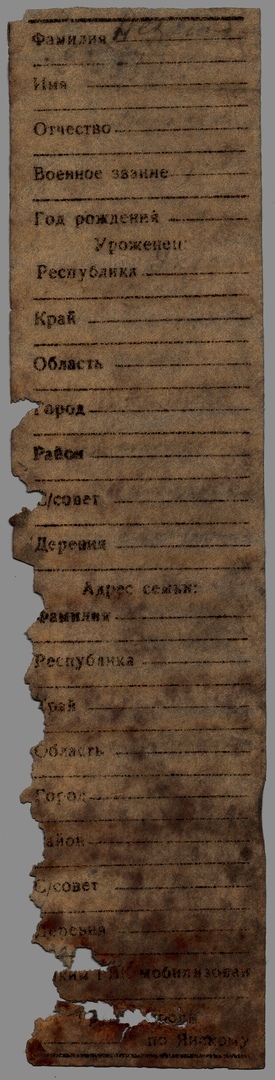 Фамилия
Имя
Отчество
Военное звание
Год рождения
Уроженец:
Республика
Край
Область
Город
Район
С/совет
Деревня
Адрес семьи:
Фамилия
Республика
Край
Область
Город
Район
С/совет
Деревня
мобилизован
по